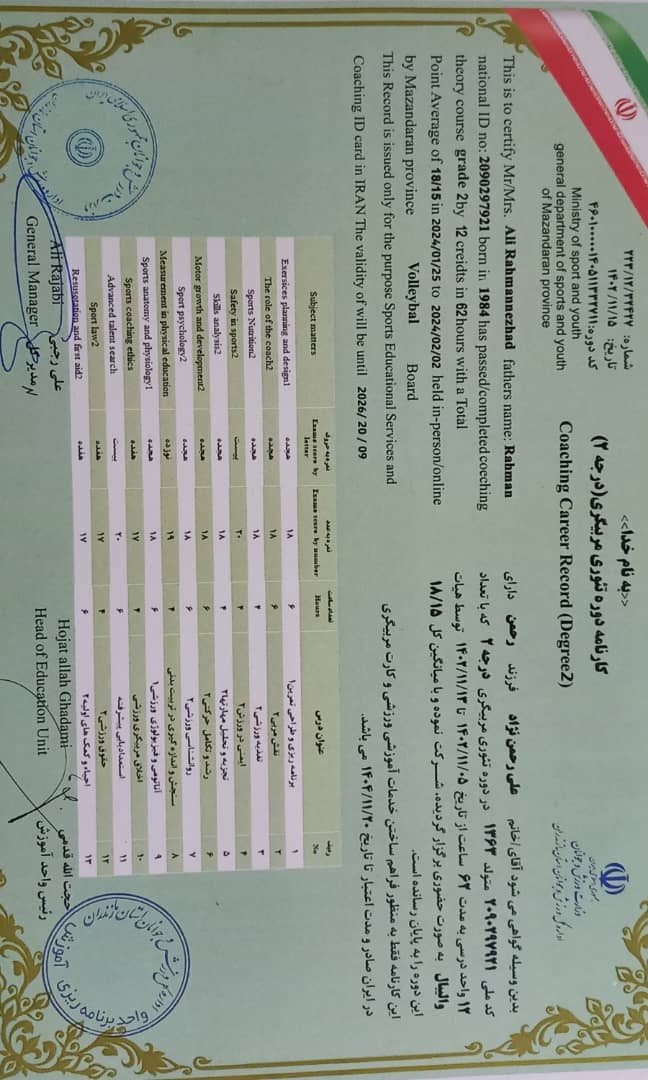 <<به نام خدا>>
کارنامه دوره تئوری مربیگری(درجه ۲)
Coaching Career Record (Degree2)
شماره: ۲۲۳/۱۲/۳۲۴۲۷
تاریخ: ۱۴۰۲/۱۱/۱۵
Ministry of sport and youth
general department of sports and youth
of Mazandaran province
وزارت ورزش و جوانان
This is to certify Mr/Mrs. Ali Rahmannezhad fathers name: Rahman
national ID no: 2090297921 born in 1984 has passed/completed coeching
theory course grade 2by 12 creidts in 62hours with a Total
Point Average of 18/15 in 2024/01/25 to 2024/02/02 held in-person/online
by Mazandaran province Volleybal Board
This Record is issued only for the purpose Sports Educational Services and
Coaching ID card in IRAN The validity of will be until 2026/ 20 / 09
بدین وسیله گواهی می شود آقای/خانم علی رحمن نژاد فرزند رحمن دارای
کد ملی ۲۰۹۰۲۹۷۹۲۱ متولد ۱۳۶۳ در دوره تئوری مربیگری درجه ۲ که با تعداد
۱۲ واحد درسی به مدت ۶۲ ساعت از تاریخ ۱۴۰۲/۱۱/۰۵ تا ۱۴۰۲/۱۱/۱۳ توسط هیات
والیبال به صورت حضوری برگزار گردیده، شرکت نموده و با میانگین کل ۱۸/۱۵
این دوره را به پایان رسانده است.
این کارنامه فقط به منظور فراهم ساختن خدمات آموزشی ورزشی و کارت مربیگری
در ایران صادر و مدت اعتبار تا تاریخ ۱۴۰۴/۱۱/۲۰ می باشد.
Subject matters نمره به حروف Exams score by letter نمره به عدد Exams score by number تعداد ساعت Hours عنوان درس ردیف No
Exersices planning and design1 هجده ۱۸ ۶ برنامه ریزی و طراحی تمرین۱ ۱
The role of the coach2 هجده ۱۸ ۶ نقش مربی۲ ۲
Sports Nutrition2 هجده ۱۸ ۴ تغذیه ورزشی۲ ۳
Safety in sports2 بیست ۲۰ ۴ ایمنی در ورزش۲ ۴
Skills analysis2 هجده ۱۸ ۴ تجزیه و تحلیل مهارتها۲ ۵
Motor growth and development2 هجده ۱۸ ۶ رشد و تکامل حرکتی۲ ۶
Sport psychology2 هجده ۱۸ ۶ روانشناسی ورزشی۲ ۷
Measurement in physical education نوزده ۱۹ ۴ سنجش و اندازه گیری در تربیت بدنی ۸
Sports anatomy and physiology1 هجده ۱۸ ۶ آناتومی و فیزیولوژی ورزشی۱ ۹
Sports coaching ethics هفده ۱۷ ۴ اخلاق مربیگری ورزشی ۱۰
Advanced talent search بیست ۲۰ ۶ استعدادیابی پیشرفته ۱۱
Sport law2 هفده ۱۷ ۴ حقوق ورزشی۲ ۱۲
Resusitation and first aid2 هفده ۱۷ ۶ احیاء و کمک های اولیه۲ ۱۳
Ali Rajabi علی رجبی
General Manager مدیرکل
Hojat allah Ghadami حجت الله قدمی
Head of Education Unit رئیس واحد آموزش